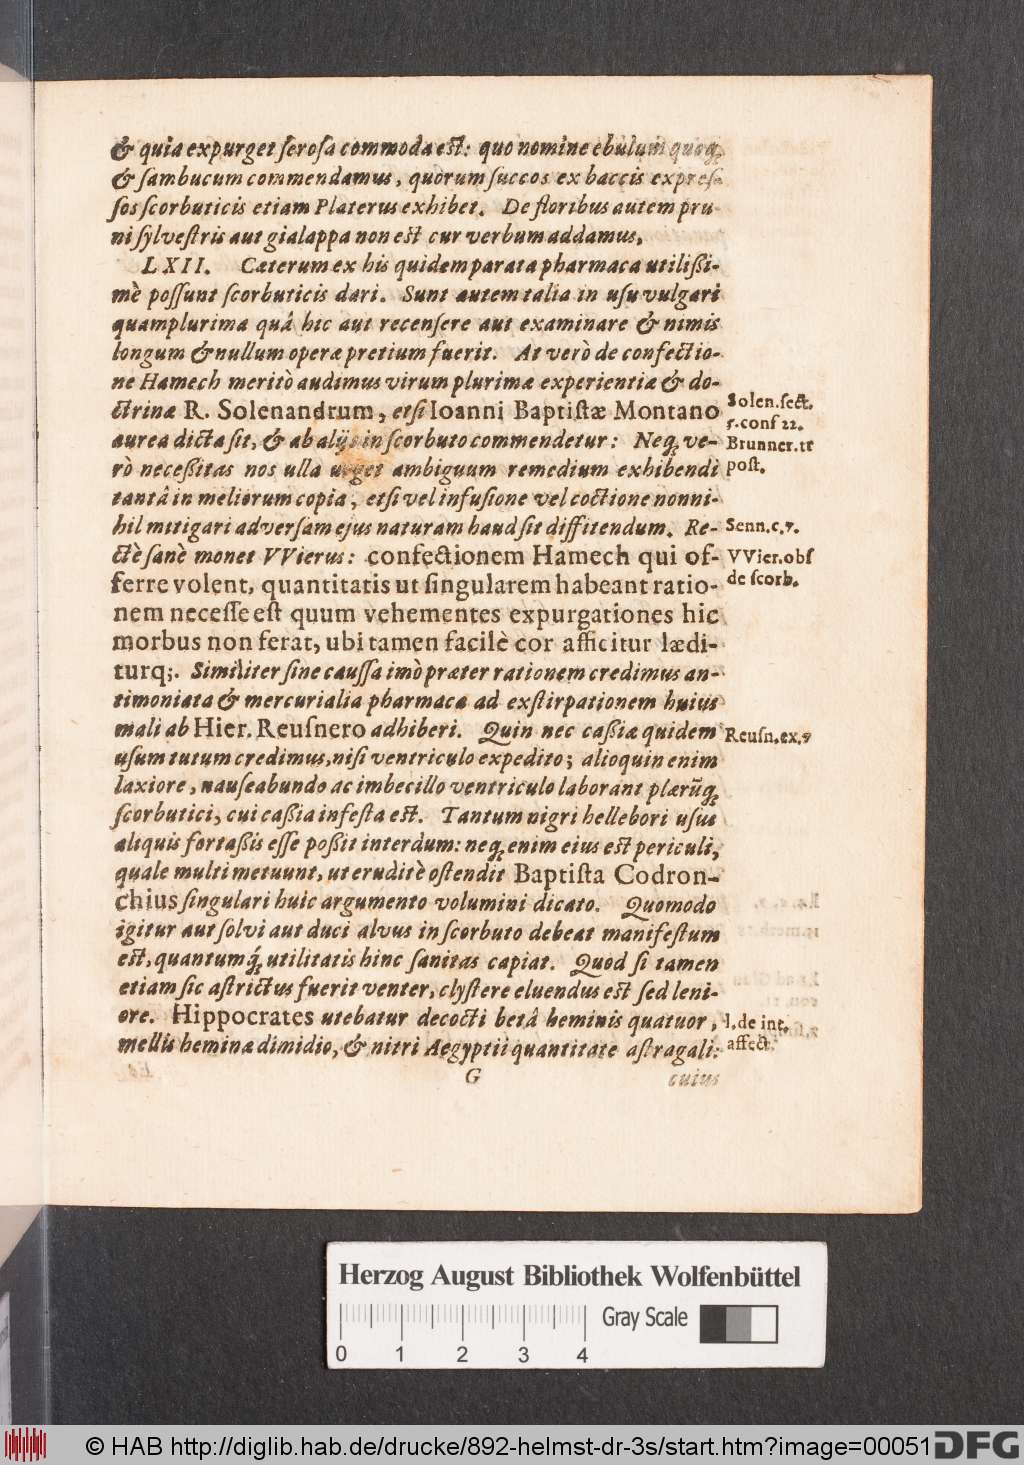 & quia expurget ſeroſa commoda eſt: quo nomine ebulum quoq;
& ſambucum commendamus, quorum ſuccos ex baccis expreſ-
ſos ſcorbuticis etiam Platerus exhibet. De floribus autem pru
ni ſylveſtris aut gialappa non eſt cur verbum addamus.
LXII. Cæterum ex his quidem parata pharmaca utilißi-
mè poſſunt ſcorbuticis dari. Sunt autem talia in uſu vulgari
quamplurima quâ hic aut recenſere aut examinare & nimis
longum & nullum operæ pretium fuerit. At verò de confectio-
ne Hamech meritò audimus virum plurimæ experientiæ & do-
ctrinæ R. Solenandrum, etſi Ioanni Baptiſtæ Montano
aurea dicta ſit, & ab alijs in ſcorbuto commendetur: Neq; ve-
rò neceßitas nos ulla urget ambiguum remedium exhibendi
tantâ in meliorum copia, etſi vel infuſione vel coctione nonni-
hil mitigari adverſam ejus naturam haud ſit diffitendum. Re-
ctè ſanè monet VVierus: confectionem Hamech qui of-
ferre volent, quantitatis ut ſingularem habeant ratio-
nem neceſſe eſt quum vehementes expurgationes hic
morbus non ferat, ubi tamen facilè cor afficitur lædi-
turq;. Similiter ſine cauſſa imò præter rationem credimus an-
timoniata & mercurialia pharmaca ad exſtirpationem huius
mali ab Hier. Reuſnero adhiberi. Quin nec caßiæ quidem
uſum tutum credimus, niſi ventriculo expedito; alioquin enim
laxiore, nauſeabundo ac imbecillo ventriculo laborant plærũq;
ſcorbutici, cui caßia infeſta eſt. Tantum nigri hellebori uſus
aliquis fortaßis eſſe poßit interdum: neq; enim eius eſt periculi,
quale multi metuunt, ut eruditè oſtendit Baptiſta Codron-
chius ſingulari huic argumento volumini dicato. Quomodo
igitur aut ſolvi aut duci alvus in ſcorbuto debeat manifeſtum
eſt, quantumq́; utilitatis hinc ſanitas capiat. Quod ſi tamen
etiam ſic aſtrictus fuerit venter, clyſtere eluendus eſt ſed leni-
ore. Hippocrates utebatur decocti betâ heminis quatuor,
mellis heminæ dimidio, & nitri Aegyptii quantitate aſtragali:
G
cuius
Solen. ſect.
5. conſ 22.
Brunner. tr
poſt.
Senn. c. 7.
VVier. obſ
de ſcorb.
Reuſn. ex. 9
l. de int.
affect.
Herzog August Bibliothek Wolfenbüttel
Gray Scale
0 1 2 3 4
© HAB http://diglib.hab.de/drucke/892-helmst-dr-3s/start.htm?image=00051
DFG